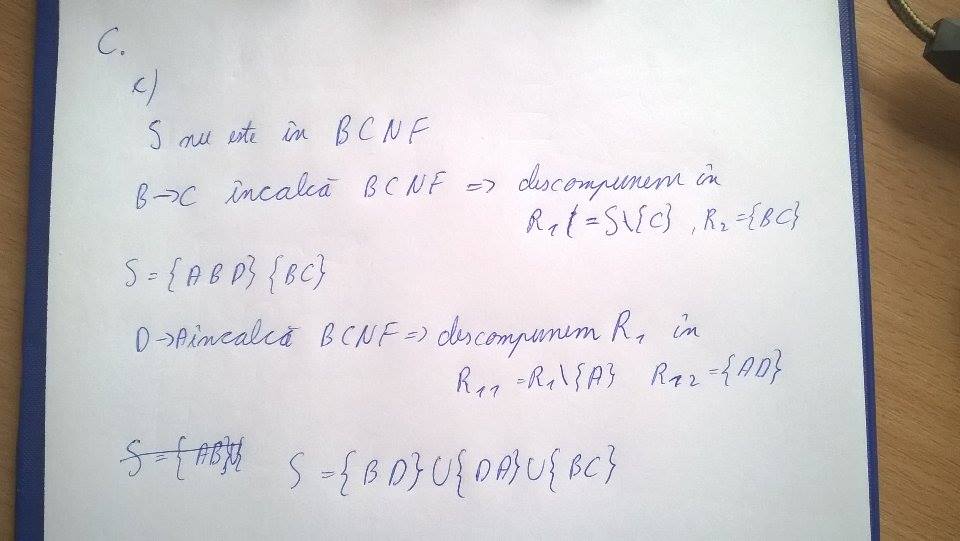 C.
c)
S nu este în BCNF
B→C încalcă BCNF => descompunem în
R₁ = S\{C} , R₂={BC}
S={ABD}{BC}
D→A încalcă BCNF => descompunem R₁ în
R₁₁ = R₁\{A} R₁₂={AD}
S={AB}U{ S={BD}U{DA}U{BC}